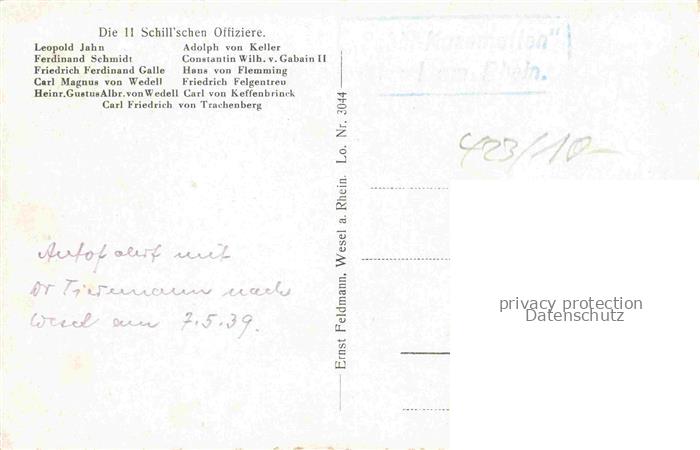 Die 11 Schill'schen Offiziere.
Leopold Jahn Adolph von Keller
Ferdinand Schmidt Constantin Wilh. v. Gabain II
Friedrich Ferdinand Galle Hans von Flemming
Carl Magnus von Wedell Friedrich Felgentreu
Heinr. Gustus Albr. von Wedell Carl von Keffenbrinck
Carl Friedrich von Trachenberg
Ernst Feldmann, Wesel a. Rhein. Lo. Nr. 3044
423/10-
Autofahrt mit
Dr Tiedemann nach
Wesel am 7.5.39.
privacy protection
Datenschutz